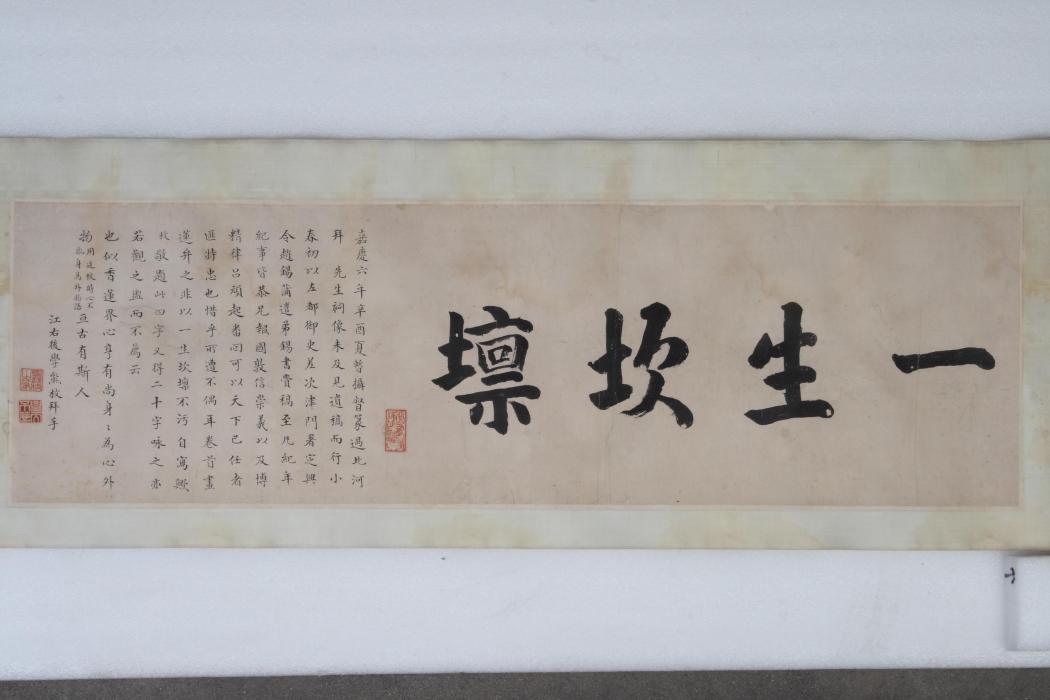 一生坎壈
嘉慶六年辛酉夏暫攝督篆過北河
拜 先生祠像未及見遺稿而行小
春初以左都御史差次津門署定興
令趙錫蒲遣弟錫書賫稿至凡紀年
紀事皆恭兄報國敦信崇義以及博
精律呂頑起者回可以天下已任者
匪特忠也惜乎所遭不偶耳卷首畫
蓮弁之非以一生坎壈不污自寫歟
枚敬題此四字又得二十字咏之亦
若觀之盥而不薦云
也似香蓮界心享有尚身〻為心外
物 亘古有斯人
江右後學熊枚拜手